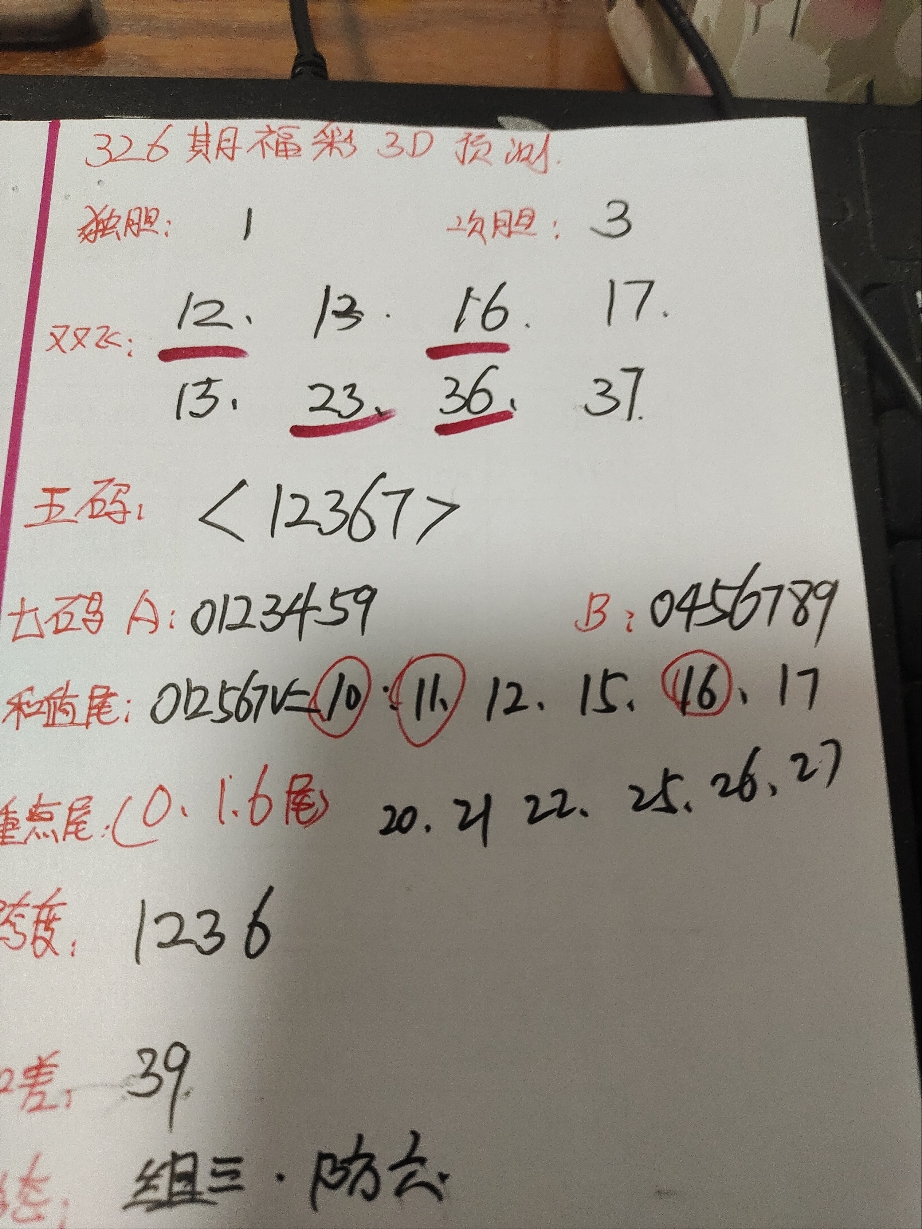 326期福彩3D预测.
独胆: 1 次胆: 3
双飞: 12、 13. 16. 17.
13、 23、 36、 37.
五码: <12367>
七码A:0123459 B:0456789
和值尾:012567V=10.11、12、15、16、17
重点尾:(0、1.6尾) 20、21 22、25、26、27
跨度: 1236
差: 39.
态: 组三.防六.